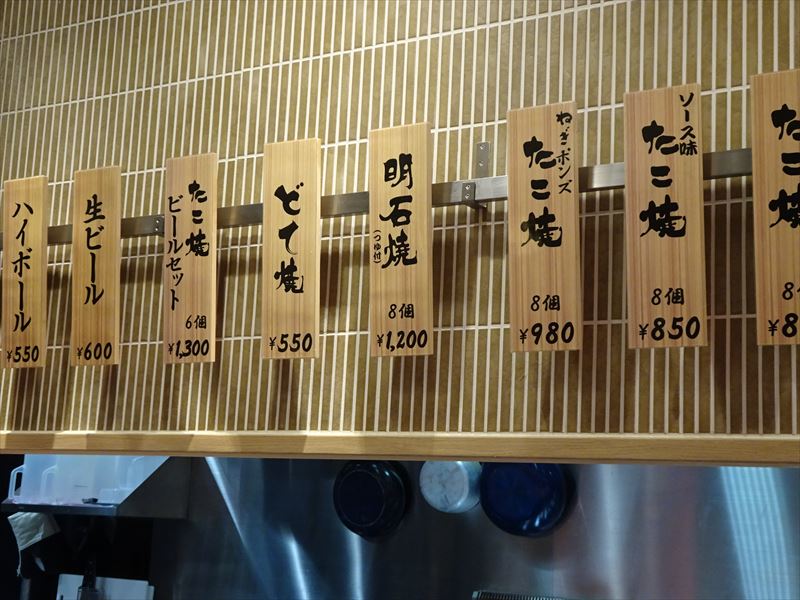 たこ焼
8
¥8
ソース味
たこ焼
8個
¥850
ねぎポンズ
たこ焼
8個
¥980
明石焼
(つゆ付)
8個
¥1,200
どて焼
¥550
たこ焼
ビールセット
6個
¥1,300
生ビール
¥600
ハイボール
¥550